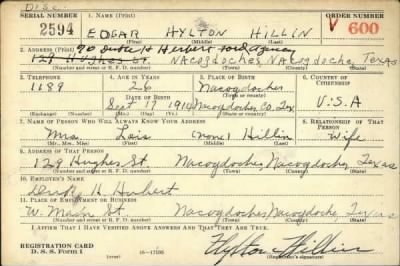 Disc.
SERIAL NUMBER 1. NAME (Print) ORDER NUMBER
2594 EDGAR HYLTON HILLIN V 600
(First) (Middle) (Last)
2. ADDRESS (Print) % H Herbert Ford Agency
129 HUGHES St. NACOGDOCHES, NACOGDOCHES, TEXAS
(Number and street or R. F. D. number) (Town) (County) (State)
3. TELEPHONE 4. AGE IN YEARS 5. PLACE OF BIRTH 6. COUNTRY OF CITIZENSHIP
1189 26 Nacogdoches
DATE OF BIRTH (Town or county)
Sept 17 1914 Nacogdoches Co. Tex U.S.A
(Mo.) (Day) (Yr.) (State or country)
7. NAME OF PERSON WHO WILL ALWAYS KNOW YOUR ADDRESS 8. RELATIONSHIP OF THAT PERSON
Mrs. Lois (none) Hillin Wife
(Mr., Mrs., Miss) (First) (Middle) (Last)
9. ADDRESS OF THAT PERSON
129 Hughes St. Nacogdoches, Nacogdoches, Texas
(Number and street or R. F. D. number) (Town) (County) (State)
10. EMPLOYER'S NAME
H. Herbert
11. PLACE OF EMPLOYMENT OR BUSINESS
W. Main St. Nacogdoches, Nacogdoches, Texas
(Number and street or R. F. D. number) (Town) (County) (State)
I AFFIRM THAT I HAVE VERIFIED ABOVE ANSWERS AND THAT THEY ARE TRUE.
REGISTRATION CARD
D. S. S. Form 1 (over) Hylton Hillin
(Registrant's signature)